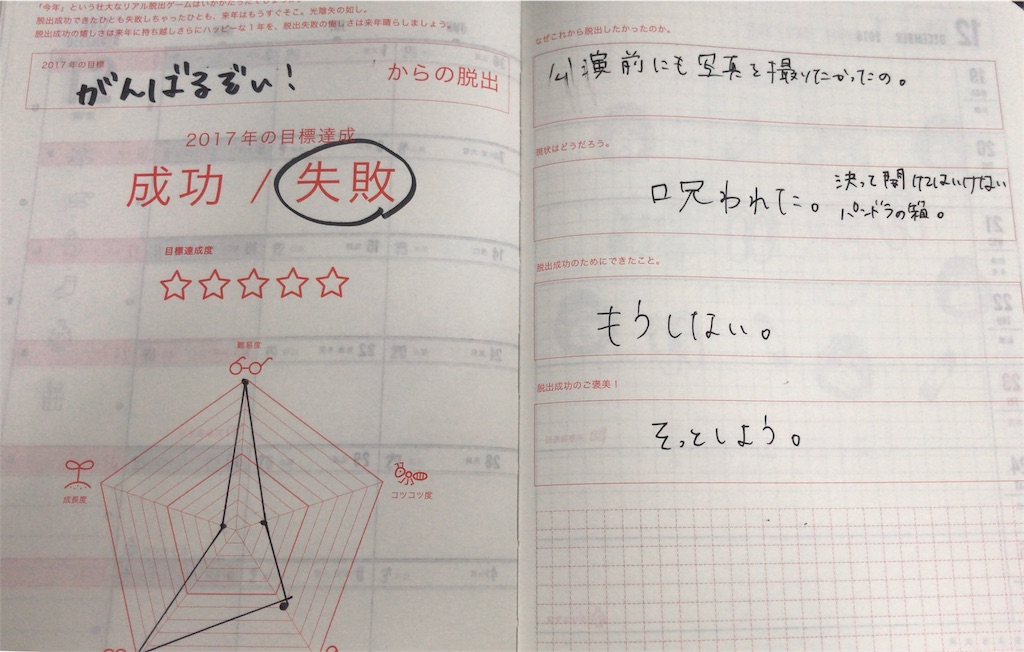 「今年」という壮大なリアル脱出ゲームはいかがだったでしょうか
脱出成功できたひとも失敗しちゃったひとも、来年はもうすぐそこ。光陰矢の如し。
脱出成功の嬉しさは来年に持ち越しさらにハッピーな1年を、脱出失敗の悔しさは来年晴らしましょう。
2017年の目標
がんばるぞい!
からの脱出
2017年の目標達成
成功 / 失敗
目標達成度
難易度
成長度
コツコツ度
12 DECEMBER 2016
なぜこれから脱出したかったのか。
公演前にも写真を撮りたかったの。
現状はどうだろう。
呪われた。
決って開けてはいけない
パンドラの箱。
脱出成功のためにできたこと。
もうしない。
脱出成功のご褒美!
そっとしよう。